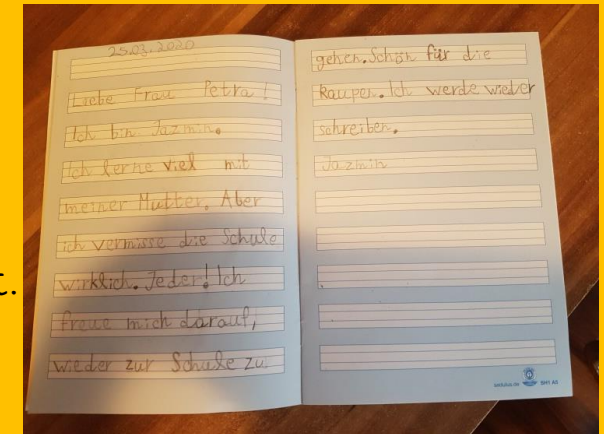 25.03.2020
Liebe Frau Petra!
Ich bin Jazmin.
Ich lerne viel mit
meiner Mutter. Aber
ich vermisse die Schule
wirklich. Jeder! Ich
freue mich darauf,
wieder zur Schule zu
gehen. Schön für die
Raupen. Ich werde wieder
schreiben.
Jazmin
SH1 A5
t.